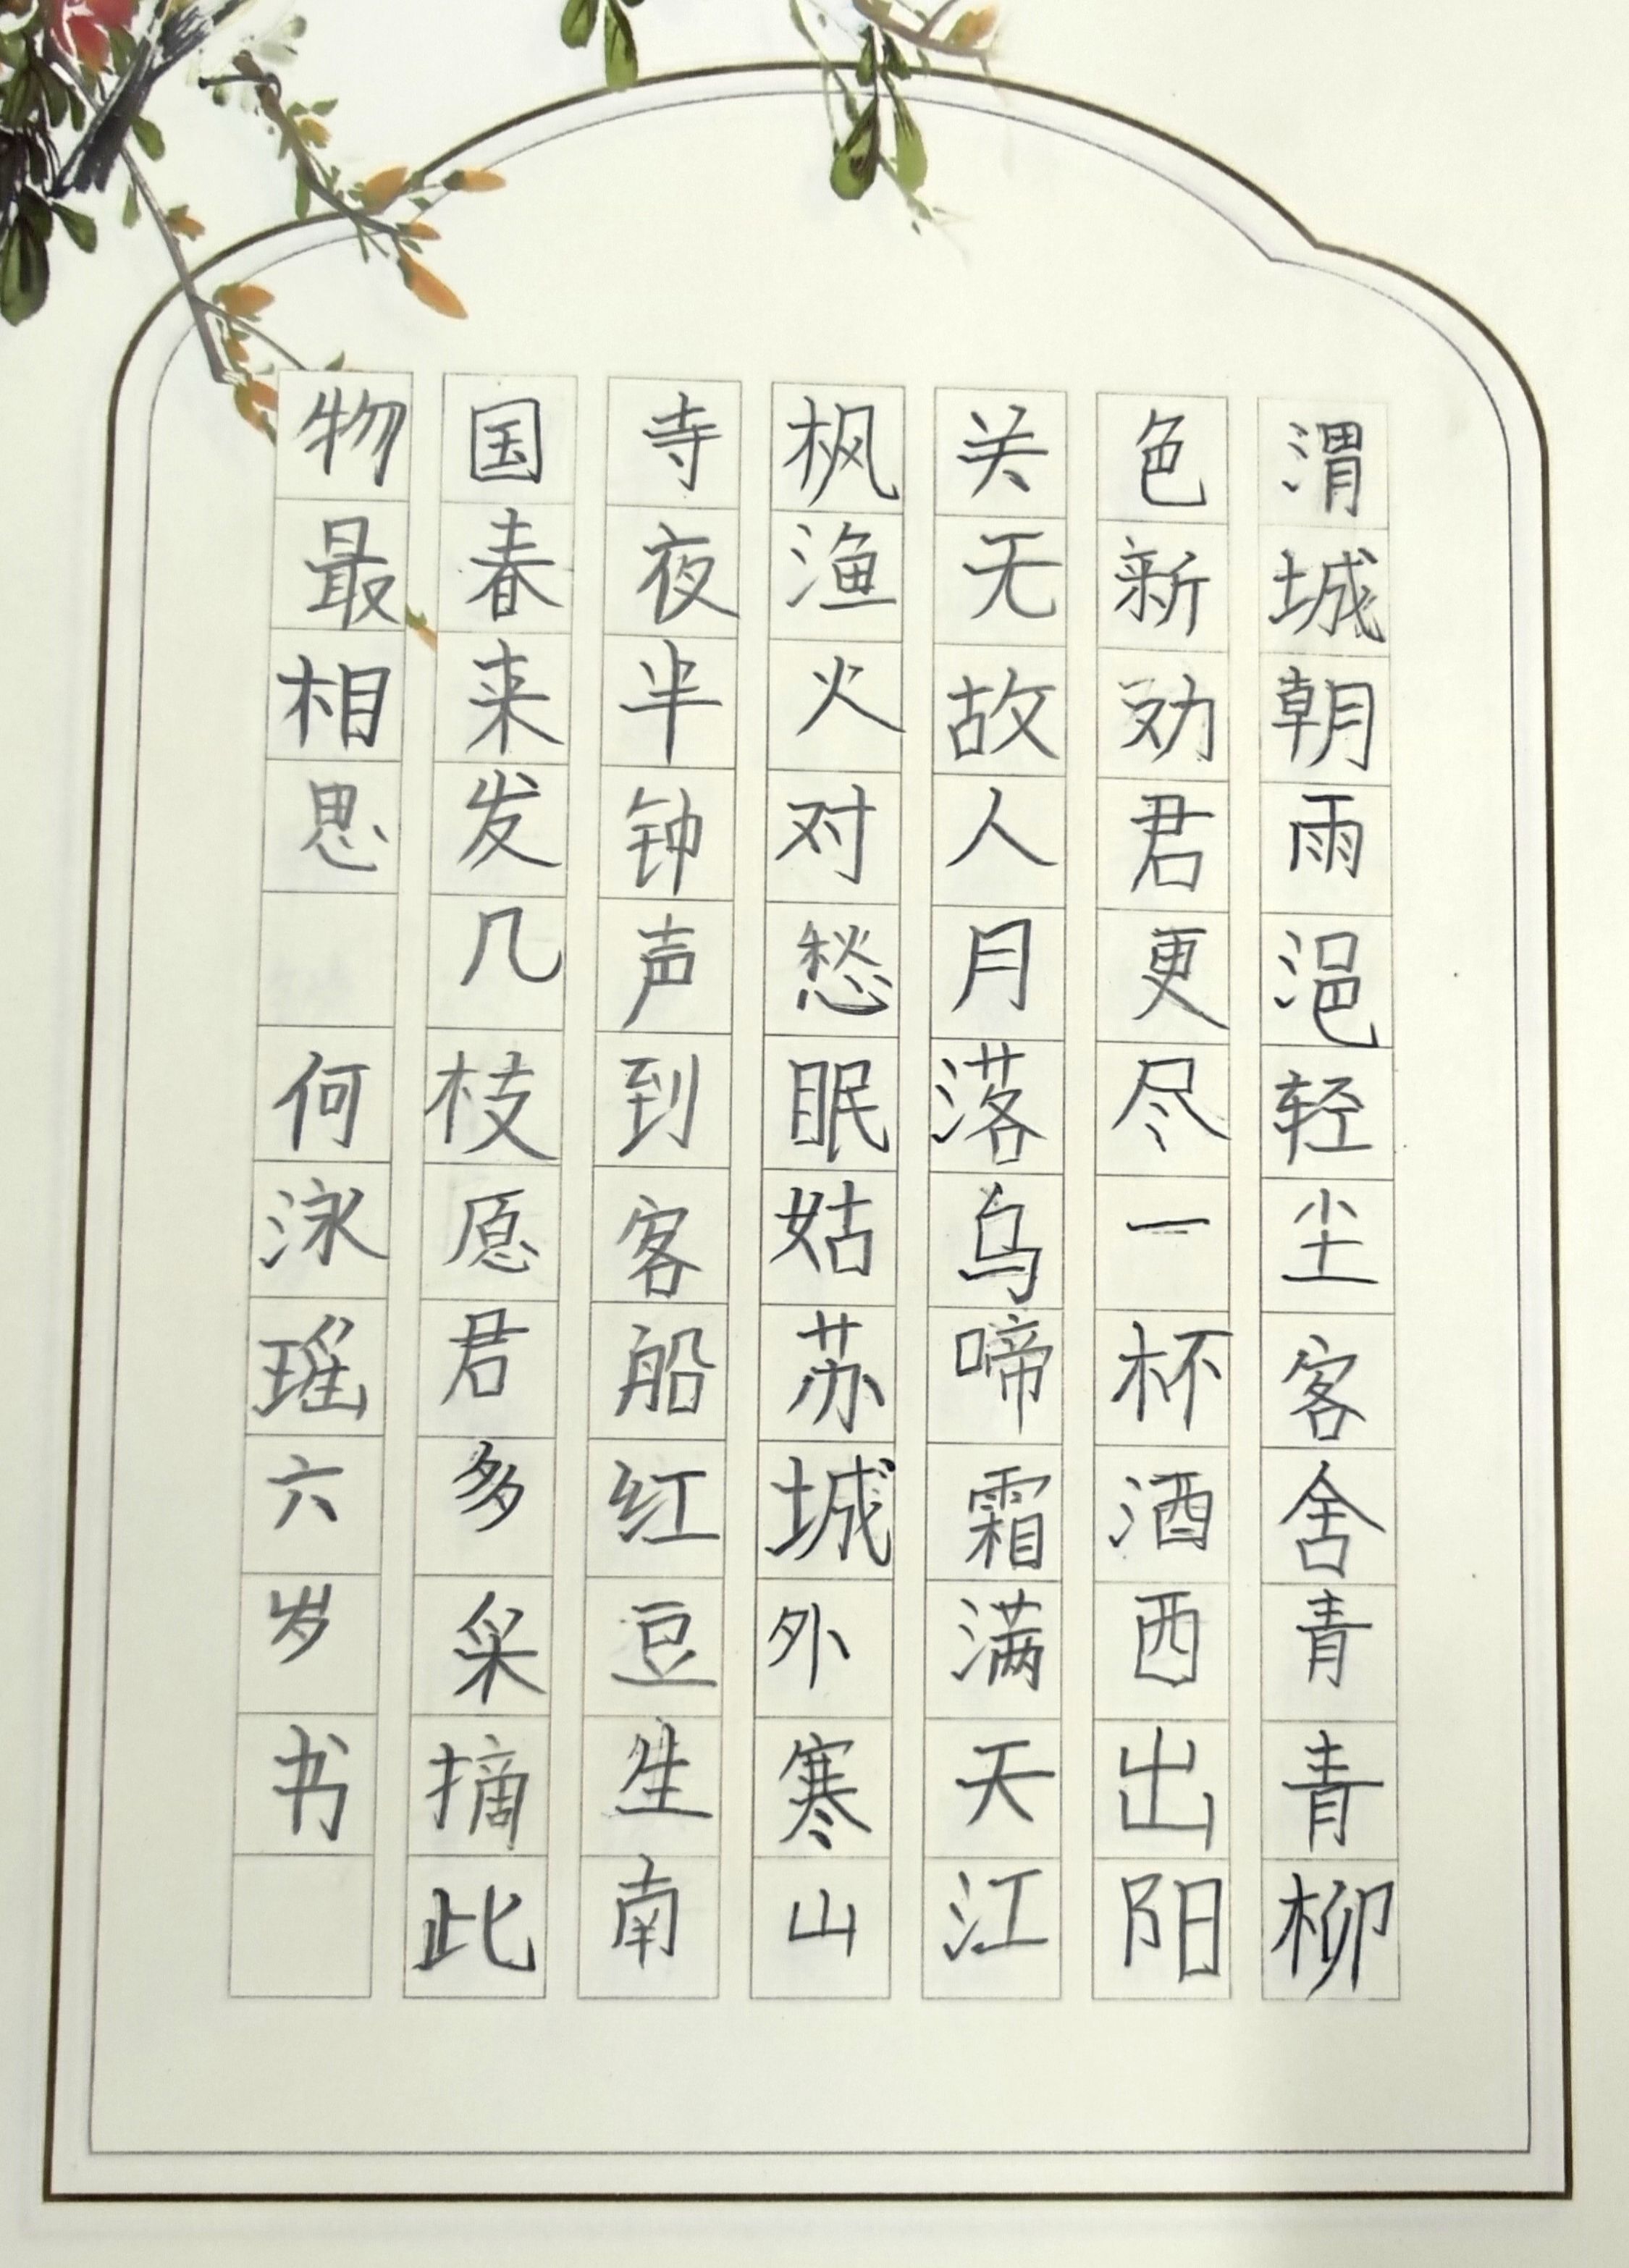 渭城朝雨浥轻尘客舍青青柳
色新劝君更尽一杯酒西出阳
关无故人月落乌啼霜满天江
枫渔火对愁眠姑苏城外寒山
寺夜半钟声到客船红豆生南
国春来发几枝愿君多采摘此
物最相思 何泳瑶六岁书